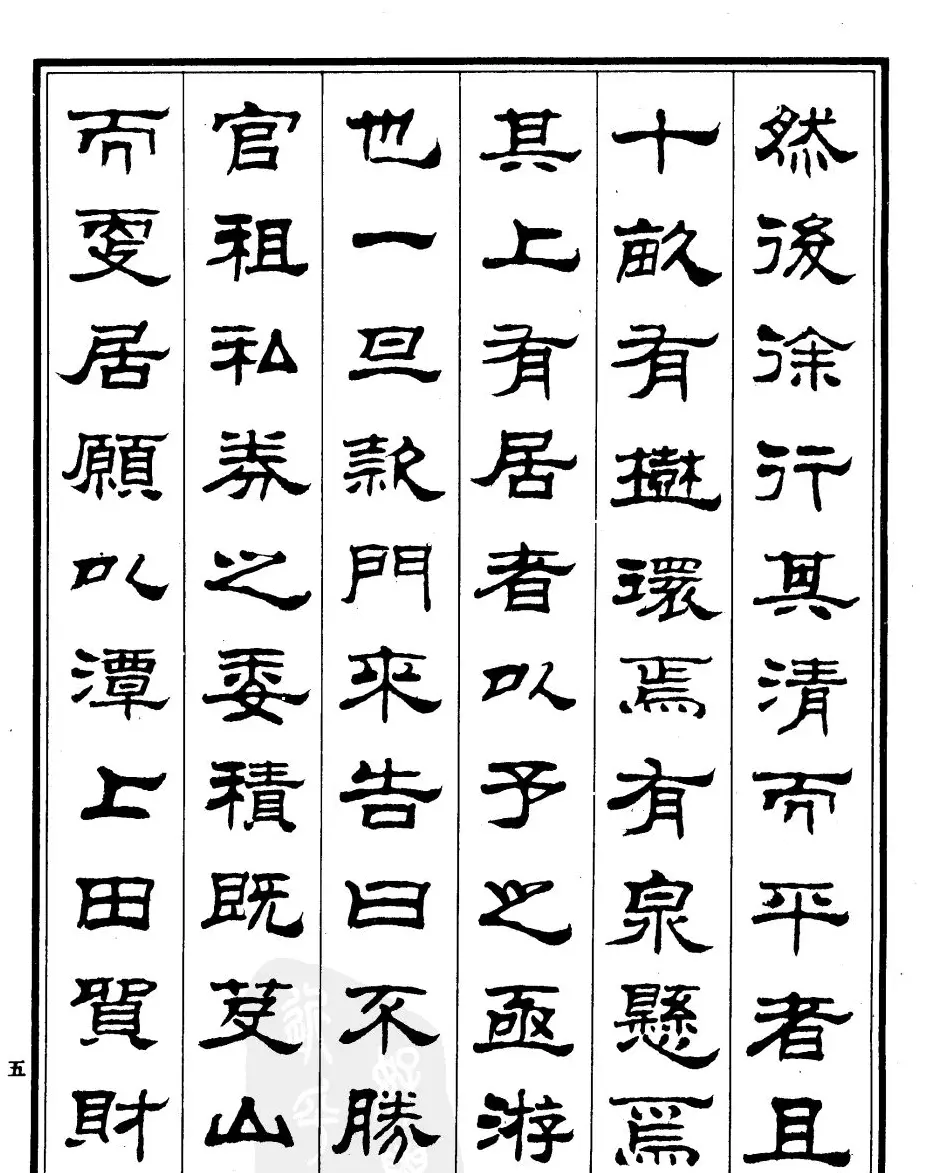 然後徐行其清而平者且
十畝有樹環焉有泉懸焉
其上有居者以予之亟游
也一旦款門來告曰不勝
官租私券之委積既芟山
而更居願以潭上田貿財
五